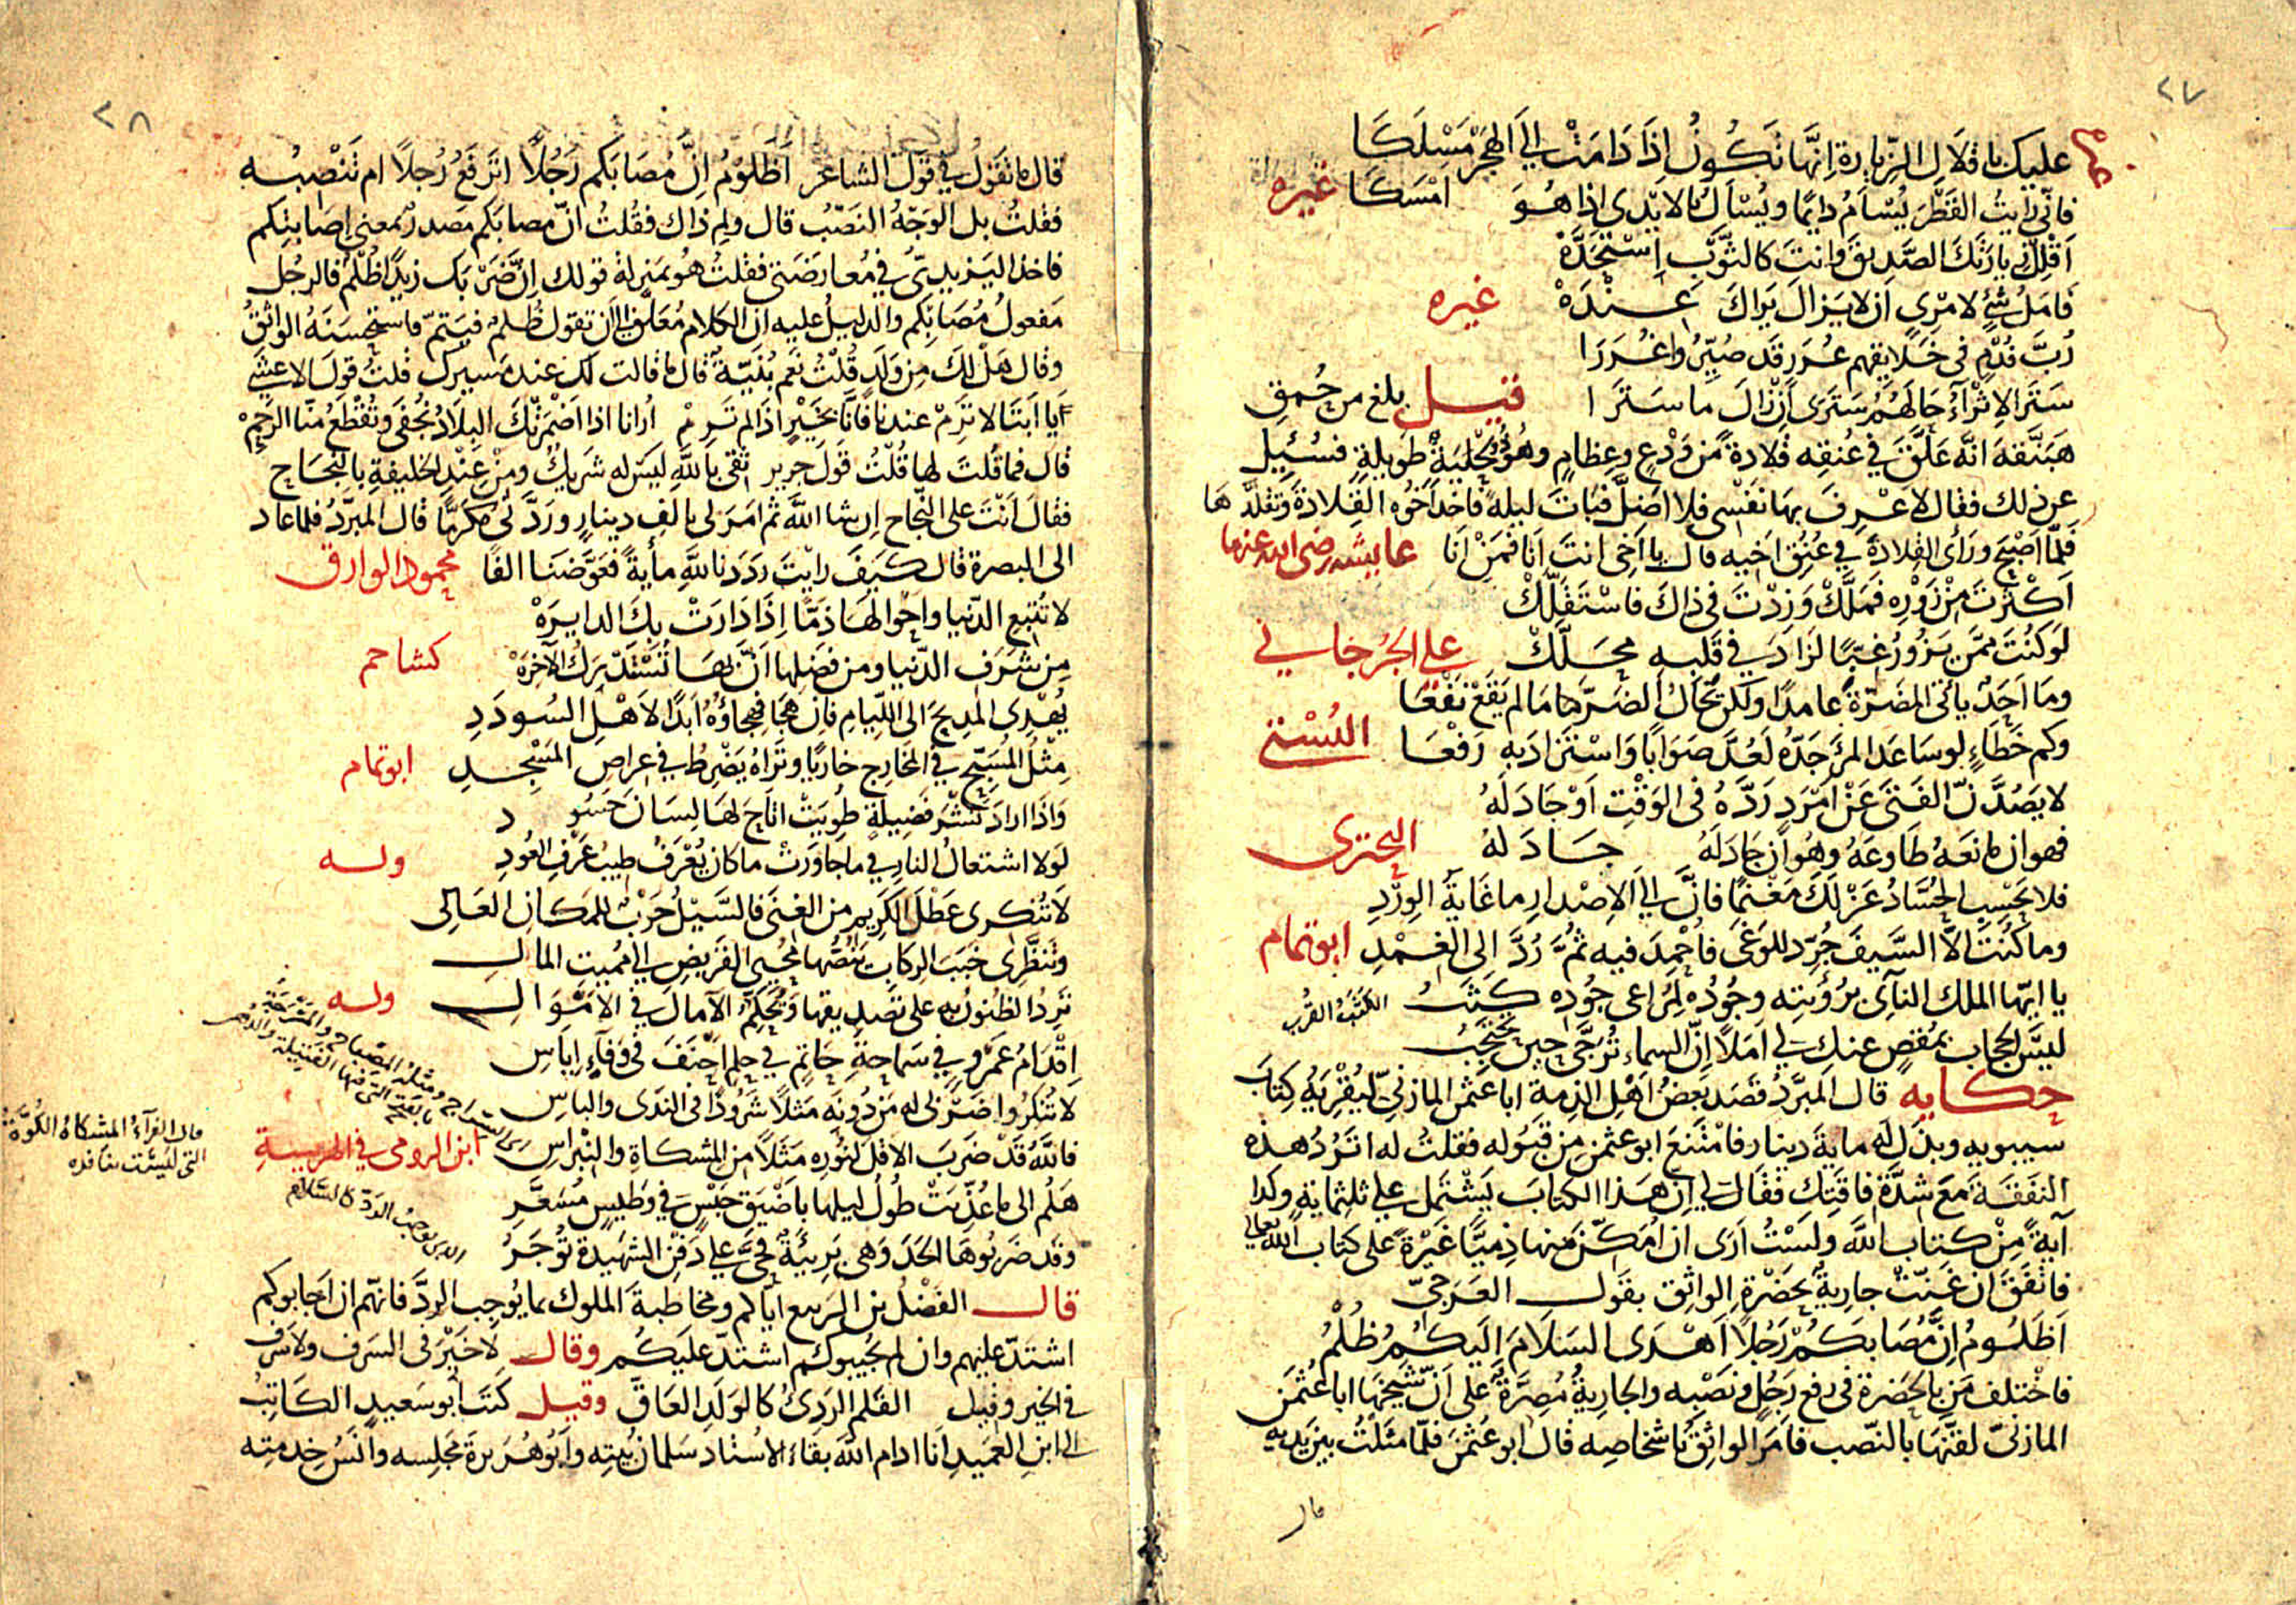 ٢٧
عليك باقلال الزيارة إنها تكون إذا دامت إلى الهجر مسلكا
فاني رايت القطر يسأم دايما ويسأل بالايدي اذا هو امسكا غيره
اقلل زيارتك الصديق وانت كالثوب استجده
فامل شئ لامرئ ان لا يزال يراك عنده غيره
رب قوم في خلايقهم عرر قد صيروا غررا
ستر الاثرآء حالهم سترى ان زال ما سترا قيل بلغ من حمق
هبنقة انه علق في عنقه قلادة من ودع وعظام وهو ذو لحية طويلة فسئل
عن ذلك فقال لاعرف بها نفسي فلا اضل فبات ليلة فاخذ اخوه القلادة وتقلدها
فلما اصبح ورأى القلادة في عنق اخيه قال يا اخي انت انا فمن انا عايشه رضى الله عنها
اكثرت من زوره فملك وزدت في ذاك فاستقلك
لو كنت ممن يزور غبا لزاد في قلبه محلك علي الجرجاني
وما احد يأتى المضرة عامدا ولكن تخال الضر ما لم يقع نفعا
وكم خطاء لو ساعد المرء جده لعد صوابا واستزاد به رفعا البستي
لا يصدنّ الفتى عن امرد رده في الوقت او جاد له
فهو ان مانعه طاوعه وهو ان جادله جاد له البحترى
فلا يحسب الحساد عزلك مغنما فان الى الاصدار ما غاية الورد
وما كنت الا السيف جرد للوغى فاحمد فيه ثم رد الى الغمد ابو تمام
يا ايها الملك النآى برؤيته وجوده لمراعى جوده كثب الكثب القرب
ليس الحجاب بمقص عنك لي املا ان السماء ترجى حين تحتجب
حكايه قال المبرد قصد بعض اهل الذمة ابا عثمن المازني ليقريه كتاب
سيبويه وبذل له ماية دينار فامتنع ابو عثمن من قبوله فقلت له اترد هذه
النفقة مع شدة فاقتك فقال لي ان هذا الكتاب يشتمل على ثلثماية وكذا
آية من كتاب الله ولست ارى ان امكن منها ذميا غيرة على كتاب الله تعالى
فاتفق ان غنت جارية بحضرة الواثق بقول العرجي
اظلوم ان مصابكم رجلا اهدى السلام اليكم ظلم
فاختلف من بالحضرة في رفع رجل ونصبه والجارية مصرة على ان شيخها ابا عثمن
المازنى لقنها بالنصب فامر الواثق باشخاصه قال ابو عثمن فلما مثلت بين يديه
قال
٢٨
قال ما تقول في قول الشاعر اظلوم ان مصابكم رجلا اترفع رجلا ام تنصبه
فقلت بل الوجه النصب قال ولم ذاك فقلت ان مصابكم مصدر بمعنى إصابتكم
فاخذ اليزيدي في معارضتي فقلت هو بمنزلة قولك ان ضربك زيدا ظلم فالرجل
مفعول مصابكم والدليل عليه ان الكلام معلق الى ان تقول ظلم فيتم فاستحسنه الواثق
وقال هل لك من ولد قلت نعم بنية قال ما قالت لك عند مسيرك قلت قول الاعشى
أيا ابتا لا ترم عندنا فانا بخير اذا لم ترم أرانا اذا اضمرتك البلاد نجفى وتقطع منا الرحم
قال فما قلت لها قلت قول جرير ثقى بالله ليس له شريك ومن عند الخليفة بالنجاح
فقال انت على النجاح ان شا الله ثم امر لى بالف دينار وردني مكرما قال المبرد فلما عاد
الى البصرة قال كيف رايت رددنا لله مأية فعوضنا الفا محمود الوارق
لا تتبع الدنيا واحوالها ذما إذا دارت بك الدايره
من شرف الدنيا ومن فضلها ان بها تستدرك الآخره كشاجم
يهدى المديح الى الليام فان هجا فهجاؤه ابدا لاهل السودد
مثل المسبح في المخارج خاريا وتراه يضرط في عراص المسجد ابو تمام
واذا اراد نشر فضيلة طويت اتاح لها لسان حسود
لولا اشتعال النار في ما جاورت ما كان يعرف طيب عرف العود وله
لا تنكرى عطل الكريم من الغنى فالسيل حرب للمكان العالى
وتنظرى خبب الركاب ينصها محيي القريض الى مميت المال
ترد الظنون به على تصديقها وتحكم الآمال في الاموال وله
اقدام عمرو في سماحة حاتم في حلم احنف في وفآء اياس
لا تنكروا ضربى له من دونه مثلا شرودا في الندى والباس
فالله قد ضرب الاقل لنوره مثلا من المشكاة والنبراس ابن الرومى في الهريسة
هلم الى ما عذبت طول ليلها باضيق حبس في وطيس مسعر
وقد ضربوها الحد وهى بريئة فحي على دفن الشهيدة توجر
قال الفضل بن الربيع اياكم ومخاطبة الملوك بما يوجب الرد فانهم ان اجابوكم
اشتد عليهم وان لم يجيبوكم اشتد عليكم وقال لا خير في السرف ولا سرف
في الخير وقيل القلم الردئ كالولد العاق وقيل كتب ابو سعيد الكاتب
الى ابن العميد انا ادام الله بقاء الاستاد سلمان بيته وابو هريرة مجلسه وانس خدمته
قال الفرآء المشكاة الكوة
التي ليست بنافذه